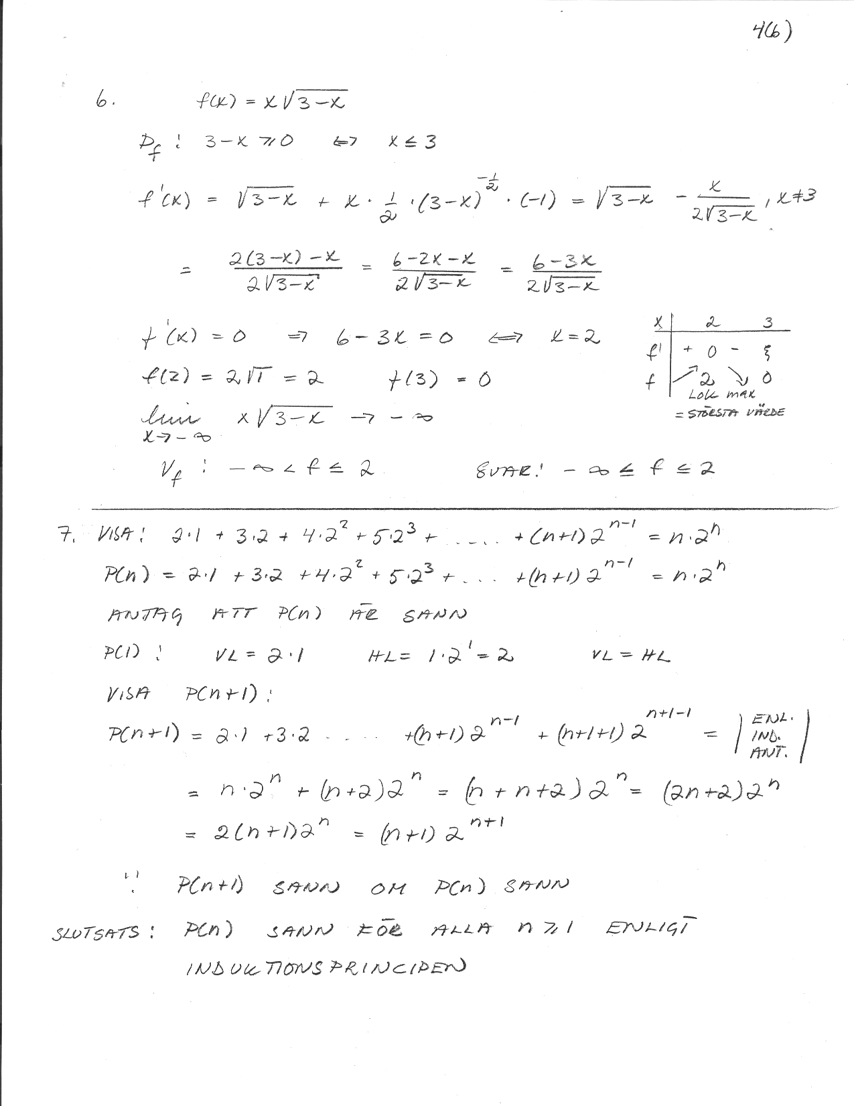 4(6)
6. f(x) = x√(3-x)
D_f : 3-x ≥ 0 ⟺ x ≤ 3
f'(x) = √(3-x) + x · 1/2 · (3-x)^(-1/2) · (-1) = √(3-x) - x/(2√(3-x)) , x≠3
= (2(3-x) - x)/(2√(3-x)) = (6-2x-x)/(2√(3-x)) = (6-3x)/(2√(3-x))
f'(x) = 0 ⇒ 6-3x = 0 ⟺ x = 2
f(2) = 2√1 = 2 f(3) = 0
x | 2 3
f' | + 0 - ξ
f | ↗ 2 ↘ 0
LOK MAX
= STÖRSTA VÄRDE
lim x→-∞ x√(3-x) → -∞
V_f : -∞ < f ≤ 2 SVAR! -∞ ≤ f ≤ 2
7. VISA: 2·1 + 3·2 + 4·2² + 5·2³ + ..... + (n+1)2^(n-1) = n·2^n
P(n) = 2·1 + 3·2 + 4·2² + 5·2³ + ... + (n+1)2^(n-1) = n·2^n
ANTAG ATT P(n) ÄR SANN
P(1) : VL = 2·1 HL = 1·2^1 = 2 VL = HL
VISA P(n+1) :
P(n+1) = 2·1 + 3·2 ..... +(n+1)2^(n-1) + (n+1+1)2^(n+1-1) = | ENL. IND. ANT. |
= n·2^n + (n+2)2^n = (n+n+2)2^n = (2n+2)2^n
= 2(n+1)2^n = (n+1)2^(n+1)
∵ P(n+1) SANN OM P(n) SANN
SLUTSATS: P(n) SANN FÖR ALLA n ≥ 1 ENLIGT
INDUKTIONSPRINCIPEN